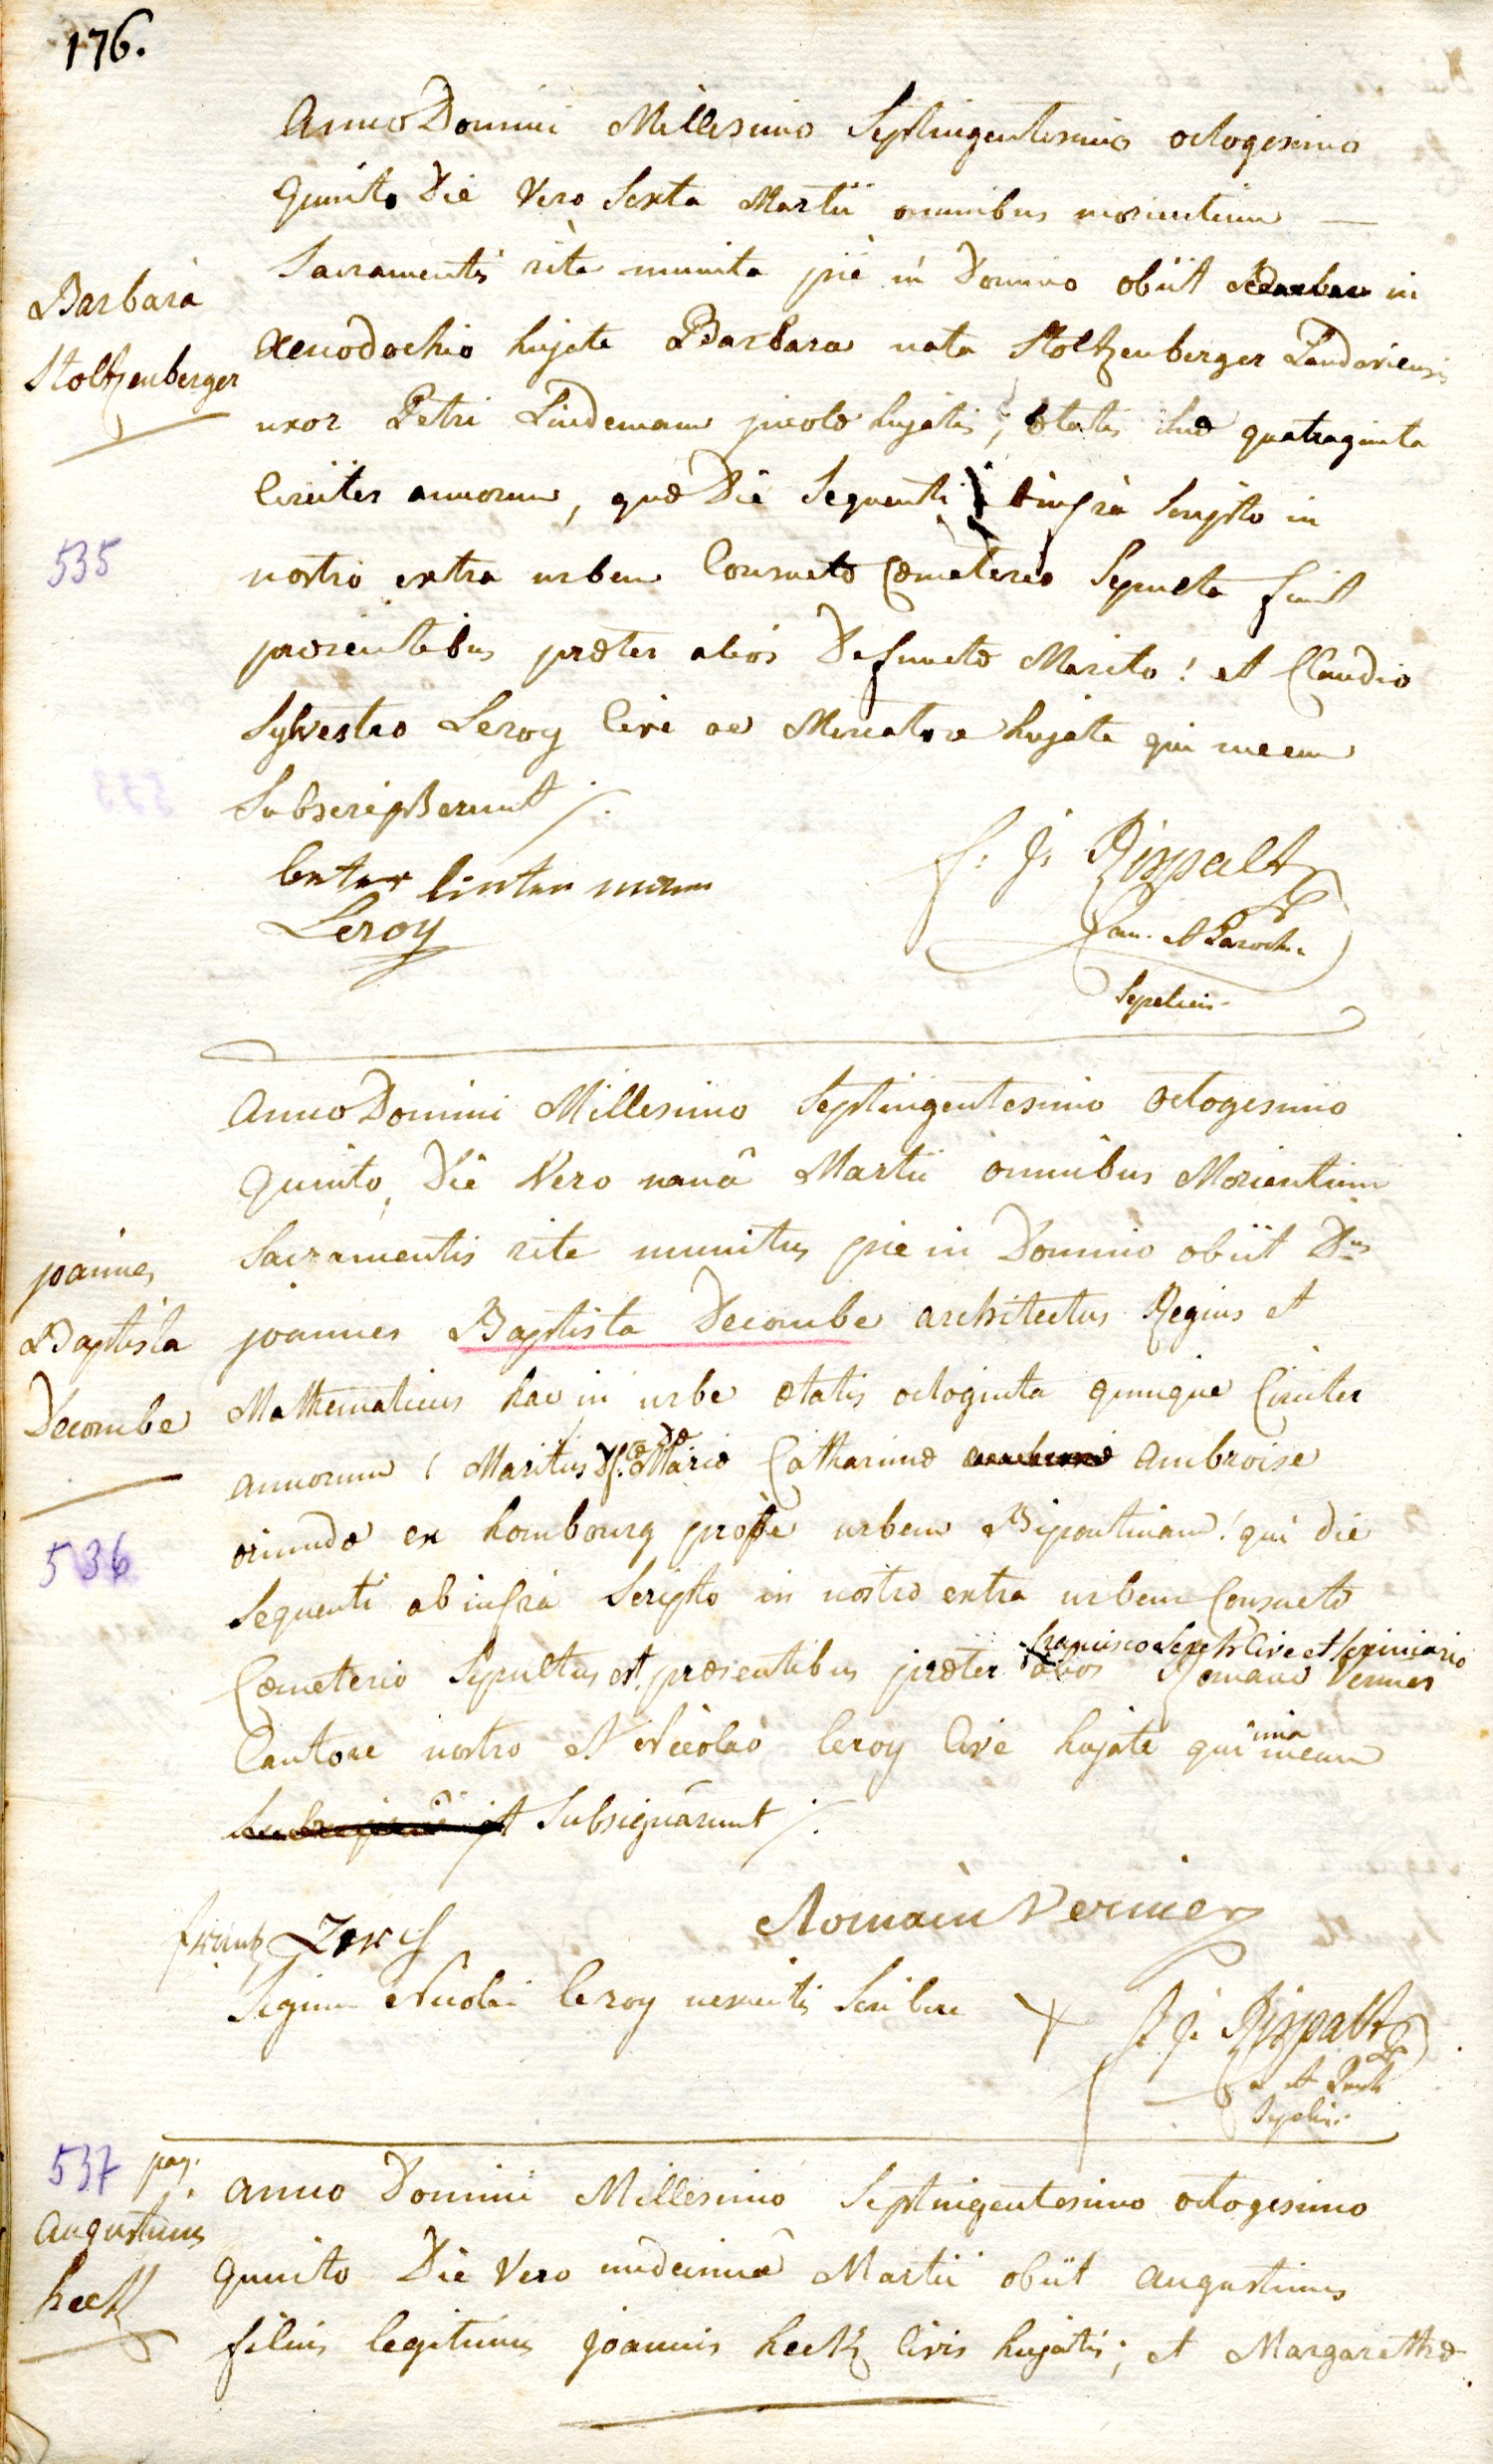 176.
Anno Domini Millesimo Septingentesimo octogesimo
quinto Die Vero Sexta Martii omnibus morientium
Barbara
Sacramentis rite munita pie in Domino obiit in
Stoltzenberger
Xenodochio hujate Barbara nata Stoltzenberger Landaviensis
uxor Petri Lindemann incolæ hujatis, ætatis suæ quatraginta
Circiter annorum, quæ Die Sequenti ab infra Scripto in
535
nostro extra urbem Consueto Cœmeterio Sepulta fuit
præsentibus præter alios Defunctæ Marito! et Claudio
Sylvestro Leroy Cive ac Mercatore hujate qui mecum
Subscripserunt ./.
beter linten mann
Leroy
f: J: Rispalt
Can. et Paroch.
Sepeliens
Anno Domini Millesimo Septingentesimo Octogesimo
Quinto, Die Vero nonâ Martii omnibus Morientium
Sacramentis rite munitus pie in Domino obiit Dnus
joannes
Baptista
Decombe
joannes Baptista Decombe architectus Regius et
Mathematicus hac in urbe ætatis octoginta quinque Circiter
annorum! Maritus Mariæ Catharinæ Ambroise
536
oriundæ ex hombourg prope urbem Bipontinam! qui die
Sequenti ab infra Scripto in nostro extra urbem Consueto
francisco Serch Cive et
Cœmeterio Sepultus est. præsentibus præter alios Romano Vernier
Cantore nostro et Nicolao leroy Cive hujate qui unà mecum
Subsignârunt ./.
frantz Zerch
Romain Vernier
Signum Nicolai leroy nescientis Scribere +
f. J. Rispalt
C et Paroch
Sepeliens
537
pag.
Augustinus
heck
Anno Domini Millesimo Septingentesimo octogesimo
quinto Die Vero undecimâ Martii obiit Augustinus
filius legitimus joannis heck Civis hujatis; et Margarethæ